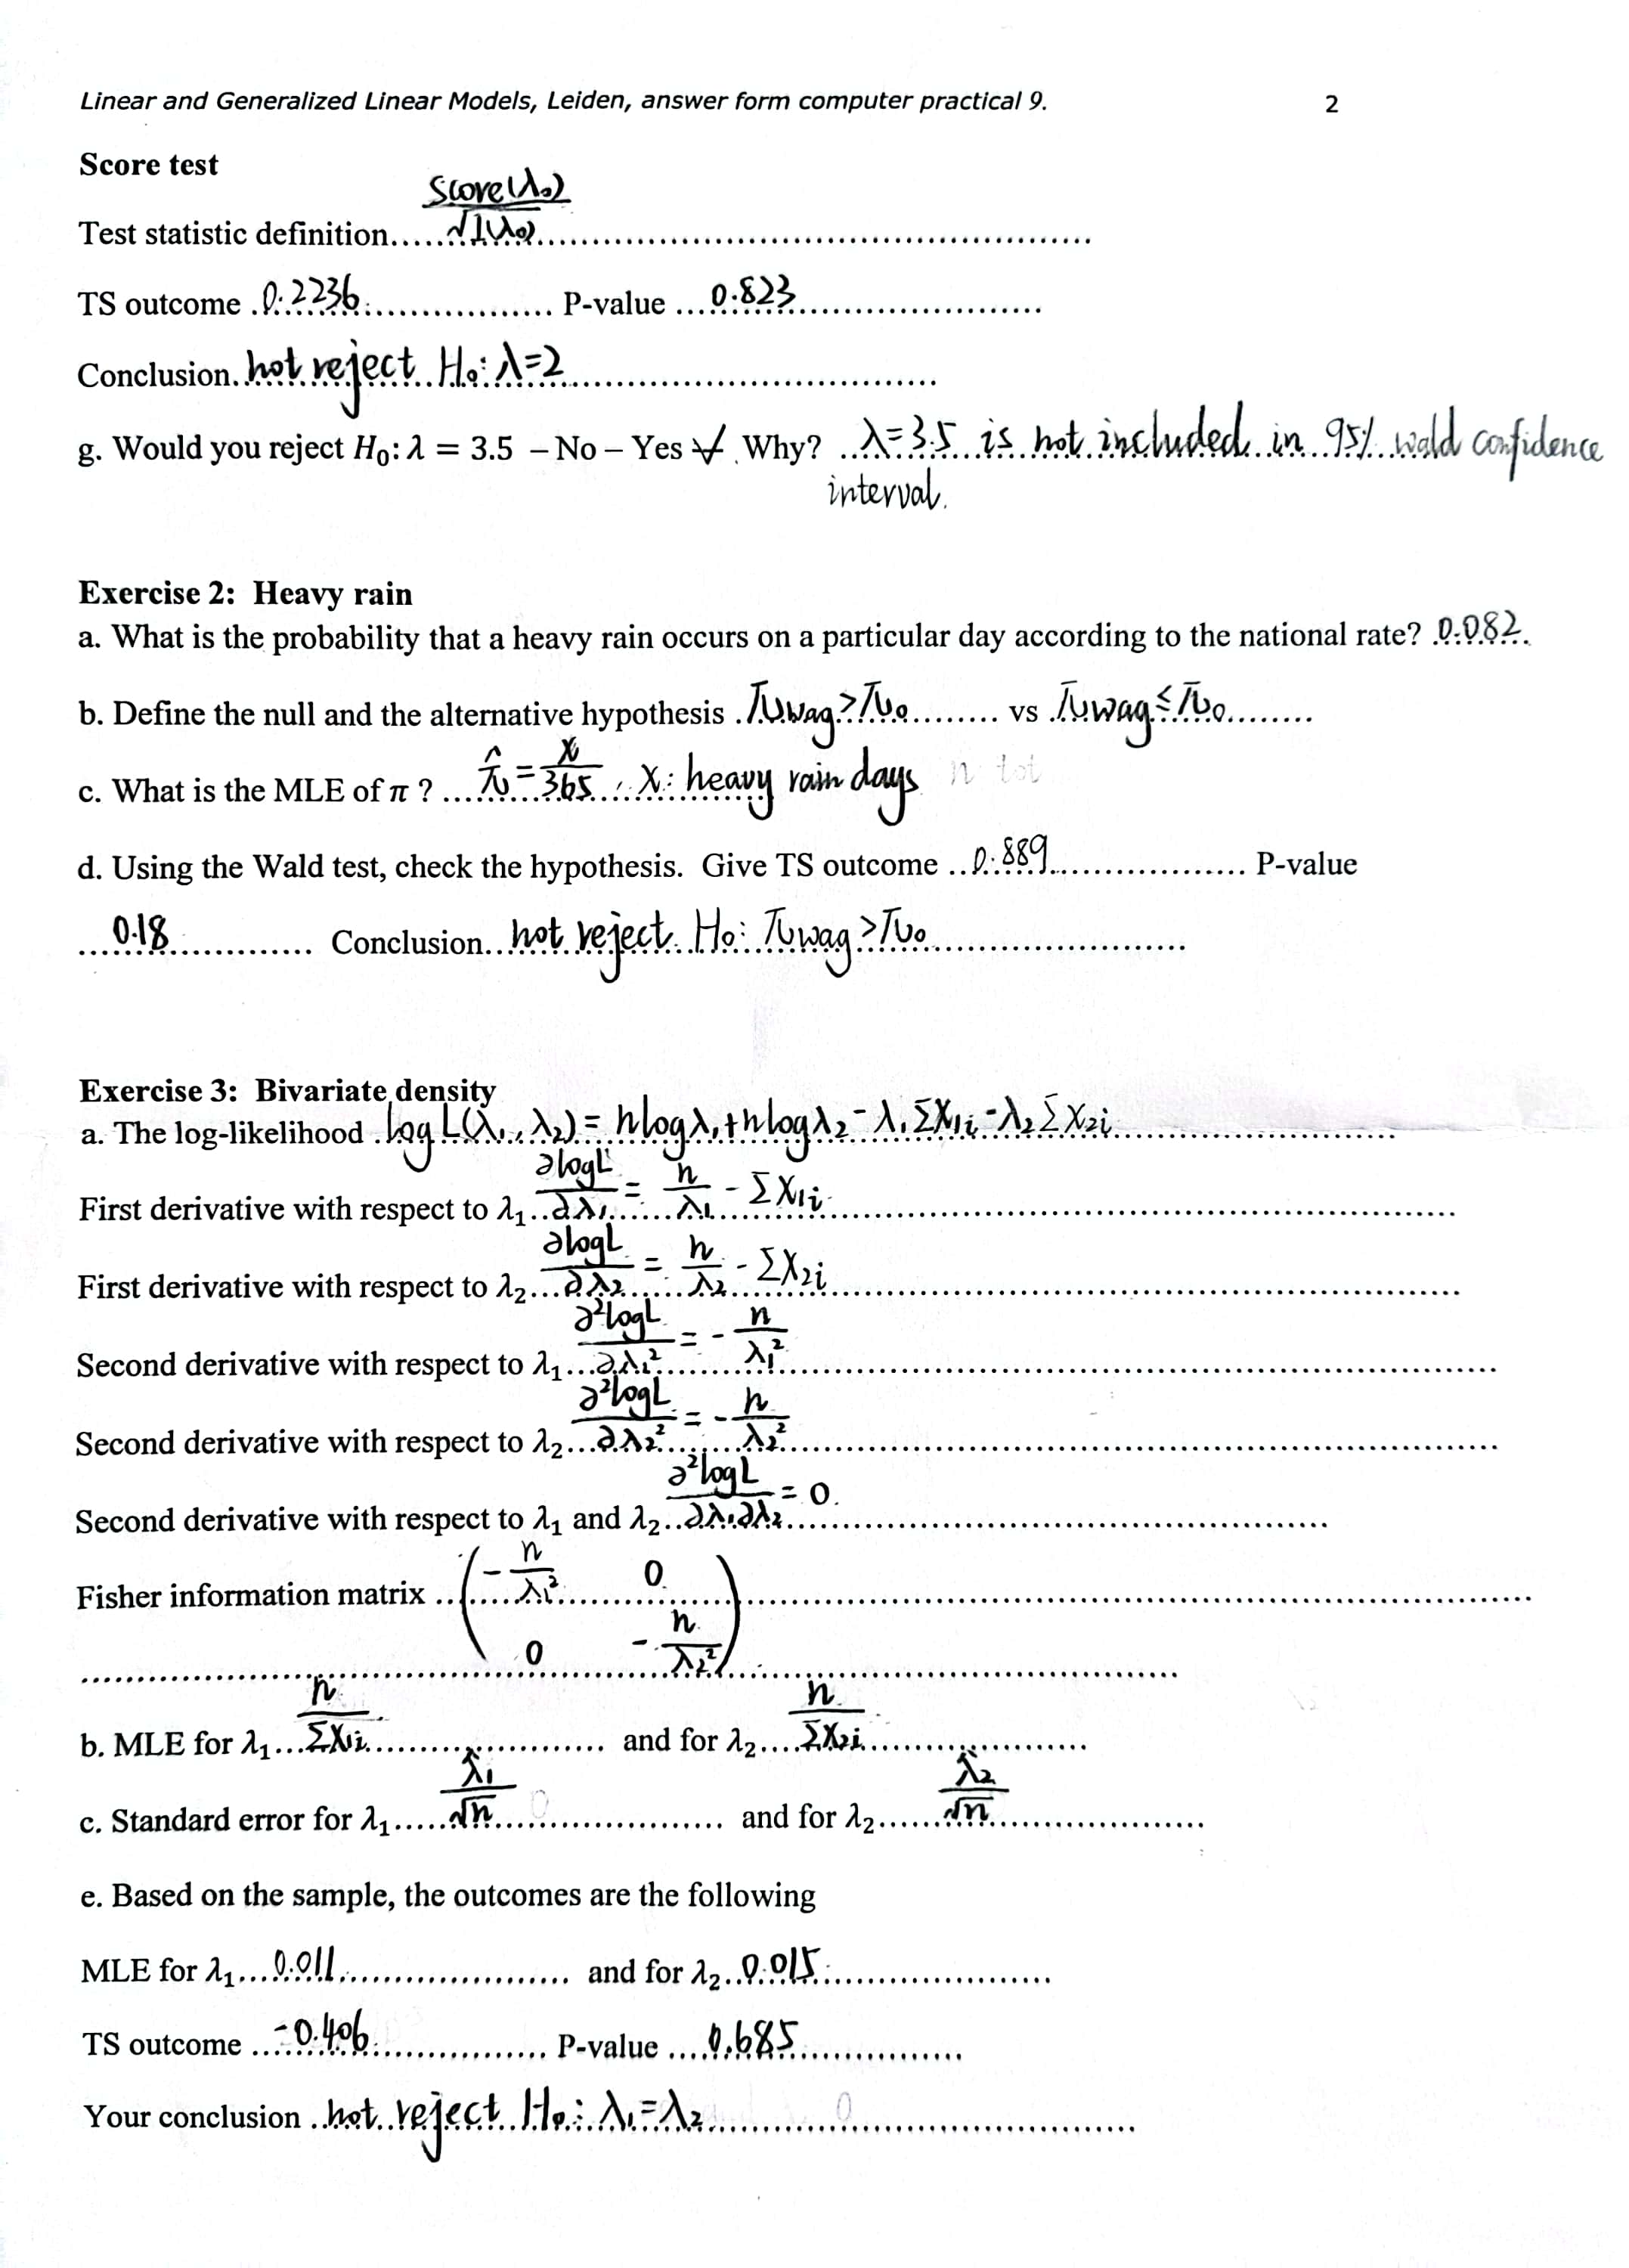 Linear and Generalized Linear Models, Leiden, answer form computer practical 9. 2
Score test
Test statistic definition..... Score(λ₀) / √I(λ₀) .....
TS outcome .0.2236. ..... P-value ...0.823.....
Conclusion. not reject H₀: λ=2 .....
g. Would you reject H₀: λ = 3.5 – No – Yes ✓ Why? ..λ=3.5 is not included in 95% wald confidence
interval.
Exercise 2: Heavy rain
a. What is the probability that a heavy rain occurs on a particular day according to the national rate? .0.082.
b. Define the null and the alternative hypothesis . πwag>π₀ ........ vs πwag≤π₀ ........
c. What is the MLE of π ? .... π̂ = x/365 , X: heavy rain days n tot
d. Using the Wald test, check the hypothesis. Give TS outcome ..0.889..... P-value
...0.18..... Conclusion.. not reject H₀: πwag>π₀ .....
Exercise 3: Bivariate density
a. The log-likelihood . log L(λ₁, λ₂) = nlogλ₁+nlogλ₂-λ₁ΣX₁ᵢ-λ₂ΣX₂ᵢ .....
First derivative with respect to λ₁.. ∂logL/∂λ₁ = n/λ₁ - ΣX₁ᵢ .....
First derivative with respect to λ₂... ∂logL/∂λ₂ = n/λ₂ - ΣX₂ᵢ .....
Second derivative with respect to λ₁... ∂²logL/∂λ₁² = - n/λ₁² .....
Second derivative with respect to λ₂... ∂²logL/∂λ₂² = - n/λ₂² .....
Second derivative with respect to λ₁ and λ₂.. ∂²logL/∂λ₁∂λ₂ = 0. .....
Fisher information matrix .. ( -n/λ₁² 0
0 -n/λ₂² ) .....
b. MLE for λ₁... n/ΣX₁ᵢ ..... and for λ₂.... n/ΣX₂ᵢ .....
c. Standard error for λ₁..... λ̂₁/√n ..... and for λ₂...... λ̂₂/√n .....
e. Based on the sample, the outcomes are the following
MLE for λ₁...0.011..... and for λ₂..0.015.....
TS outcome ... -0.406 ..... P-value ....0.685.....
Your conclusion .. not reject H₀: λ₁=λ₂ .....